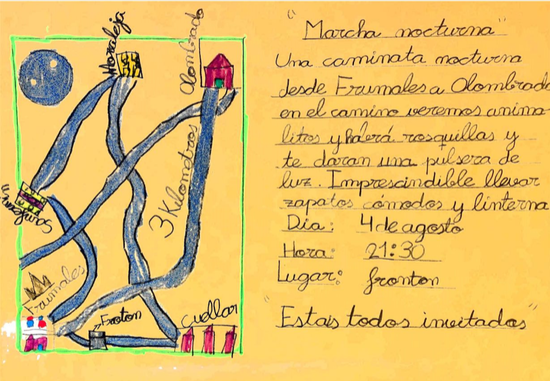 Moraleja
Olombrado
3 Kilometros
Frumales
Froton
Cuellar
"Marcha nocturna"
Una caminata nocturna
desde Frumales a Olombrada
en el camino veremos anima
litos y habrá rosquillas y
te daran una pulsera de
luz. Imprescindible llevar
zapatos cómodos y linterna
Dia: 4 de agosto
Hora: 21:30
Lugar: fronton
"Estais todos invitados"